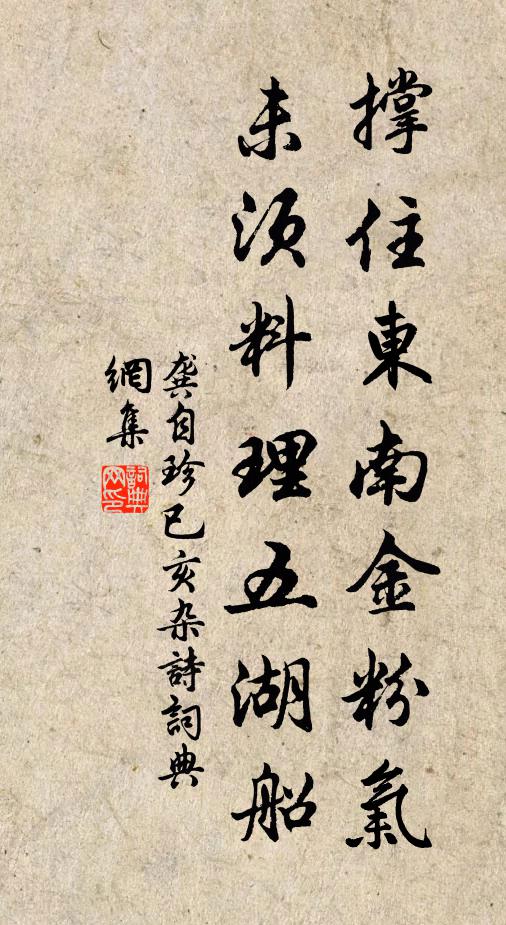 撐住東南金粉氣
未須料理五湖船
龔自珍己亥杂詩詞典
網集
詞典網印